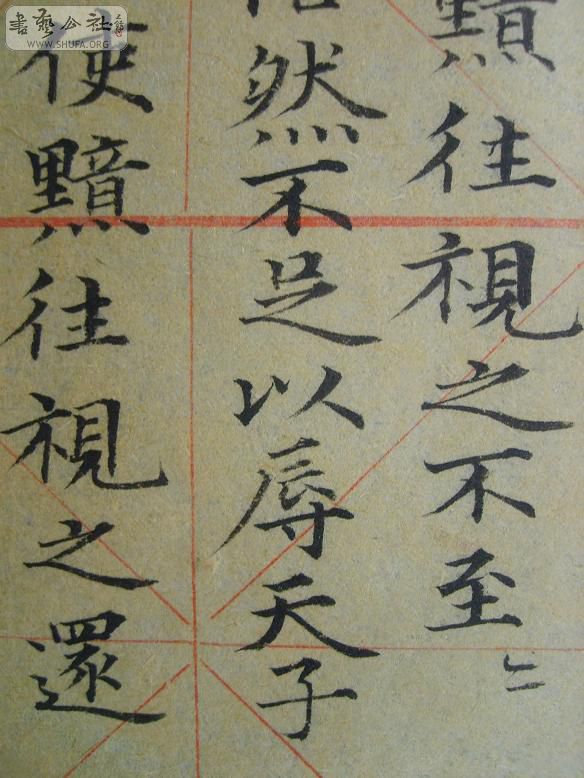 黯往視之不至〻
然不足以辱天子
使黯往視之還
書藝公社
WWW.SHUFA.ORG